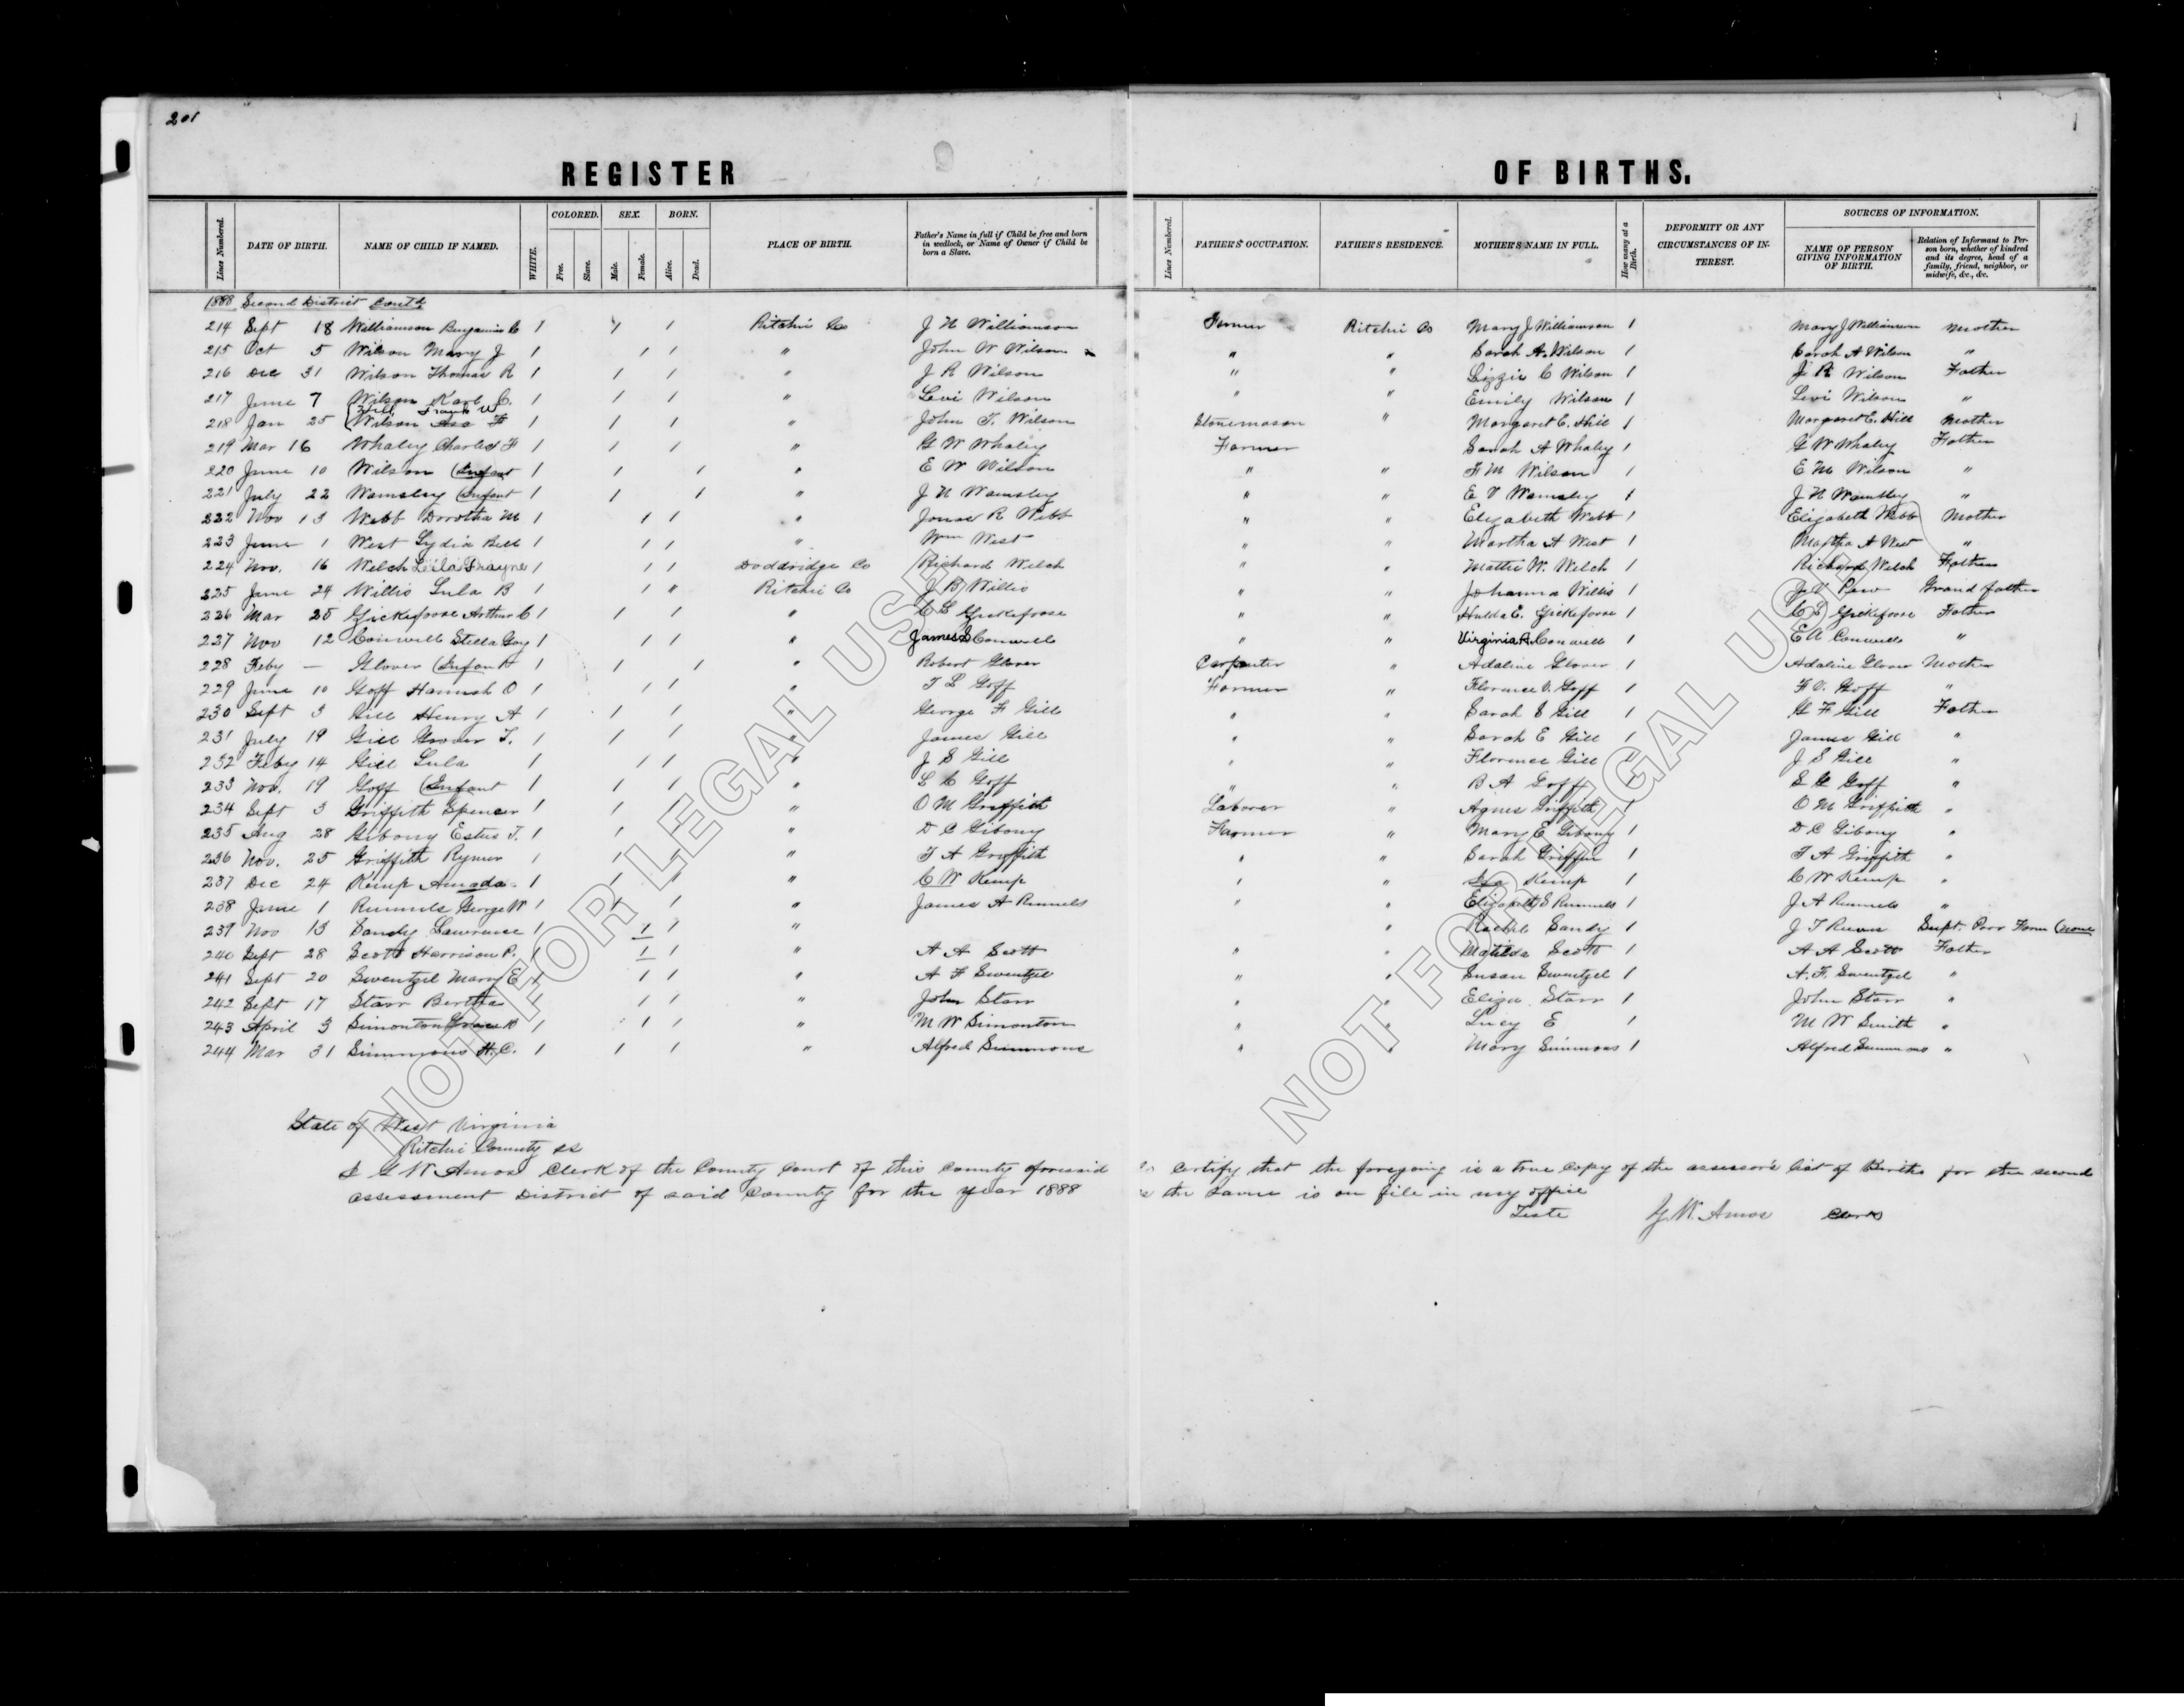 201
REGISTER OF BIRTHS.
Lines Numbered. DATE OF BIRTH. NAME OF CHILD IF NAMED. WHITE. COLORED. Free. Slave. SEX. Male. Female. BORN. Alive. Dead. PLACE OF BIRTH. Father's Name in full if Child be free and born in wedlock, or Name of Owner if Child be born a Slave. Lines Numbered. FATHER'S OCCUPATION. FATHER'S RESIDENCE. MOTHER'S NAME IN FULL. How many at a Birth. DEFORMITY OR ANY CIRCUMSTANCES OF INTEREST. SOURCES OF INFORMATION. NAME OF PERSON GIVING INFORMATION OF BIRTH. Relation of Informant to Person born, whether of kindred and its degree, head of a family, friend, neighbor, or midwife, &c., &c.
1888 Second District Contd
214 Sept 18 Williamson Benjamin C 1 1 1 Ritchie Co J N Williamson Farmer Ritchie Co Mary J Williamson 1 Mary J Williamson Mother
215 Oct 5 Wilson Mary J 1 1 1 " John W Wilson " " Sarah A. Wilson 1 Sarah A Wilson "
216 Dec 31 Wilson Thomas R 1 1 1 " J R Wilson " " Lizzie C Wilson 1 J R Wilson Father
217 June 7 Wilson Karl C. 1 1 1 " Levi Wilson " " Emily Wilson 1 Levi Wilson "
Hill, Frank W
218 Jan 25 (Wilson Asa F 1 1 1 " John T. Wilson Stonemason " Margaret E. Hill 1 Margaret E. Hill Mother
219 Mar 16 Whaley Charles F 1 1 1 " G W Whaley Farmer Sarah A Whaley 1 G W Whaley Father
220 June 10 Wilson (Infant 1 1 1 " E W Wilson " " F M Wilson 1 E M Wilson "
221 July 22 Wamsley (Infant 1 1 1 " J N Wamsley " " E V Wamsley 1 J N Wamsley "
222 Nov 13 Webb Dorotha M 1 1 1 " Jonas R Webb " " Elizabeth Webb 1 Elizabeth Webb Mother
223 June 1 West Lydia Bell 1 1 1 " Wm West " " Martha A West 1 Martha A West "
224 Nov. 16 Welch Leila Frayne 1 1 1 Doddridge Co Richard Welch " " Mattie W. Welch 1 Richard Welch Father
225 June 24 Willis Lula B 1 1 " Ritchie Co J B Willis " " Johanna Willis 1 Grand father
226 Mar 25 Zickefoose Arthur C 1 1 1 " C L Zickefoose " " Hulda E. Zickefoose 1 C L Zickefoose Father
227 Nov 12 Conwell Stella Gay 1 1 1 " James S Conwell " " Virginia A. Conwell 1 E A Conwell "
228 Feby — Glover (Infant 1 1 1 " Robert Glover Carpenter " Adaline Glover 1 Adaline Glover Mother
229 June 10 Goff Hannah O 1 1 1 " T L Goff Farmer " Florence V. Goff 1 F V. Goff "
230 Sept 3 Gill Henry A 1 1 1 " George F Gill " " Sarah E Gill 1 G F Gill Father
231 July 19 Gill Grover T. 1 1 1 " James Gill " " Sarah E Gill 1 James Gill "
232 Feby 14 Gill Lula 1 1 1 " J S Gill " " Florence Gill 1 J S Gill "
233 Nov. 19 Goff (Infant 1 1 1 " S C Goff " " B A Goff 1 S C Goff "
234 Sept 3 Griffith Spencer 1 1 1 " O M Griffith Laborer " Agnes Griffith 1 O M Griffith "
235 Aug 28 Gibony Estus T. 1 1 1 " D C Gibony Farmer " Mary E Gibony 1 D C Gibony "
236 Nov. 25 Griffith Rymer 1 1 1 " T A Griffith " " Sarah Griffin 1 T A Griffith "
237 Dec 24 Kemp Amada 1 1 " " C W Kemp " " Kemp 1 C W Kemp "
238 June 1 Runnels George W 1 1 1 " James A Runnels " " Elizabeth S Runnels 1 J A Runnels "
239 Nov 13 Sandy Lawrence 1 1 1 " " Rachel Sandy 1 J T Supt. Poor Farm (None
240 Sept 28 Scott Harrison P. 1 1 1 " A A Scott " " Matilda Scott 1 A A Scott Father
241 Sept 20 Swentzel Mary E 1 1 1 " A F Swentzel " " Susan Swentzel 1 A. F. Swentzel "
242 Sept 17 Starr Bertha 1 1 1 " John Starr " " Eliza Starr 1 John Starr "
243 April 3 Simonton Grace B 1 1 1 " M W Simonton " " Lucy E 1 M W Smith "
244 Mar 31 Simmons H. C. 1 1 1 " Alfred Simmons " " Mary Simmons 1 Alfred Simmons "
State of West Virginia
Ritchie County ss
I G W Amos Clerk of the County Court of this County aforesaid do certify that the foregoing is a true copy of the assessor's list of Births for the second
assessment District of said County for the year 1888 the same is on file in my office
Teste G. W. Amos Clerk
NOT FOR LEGAL USE
NOT FOR LEGAL USE